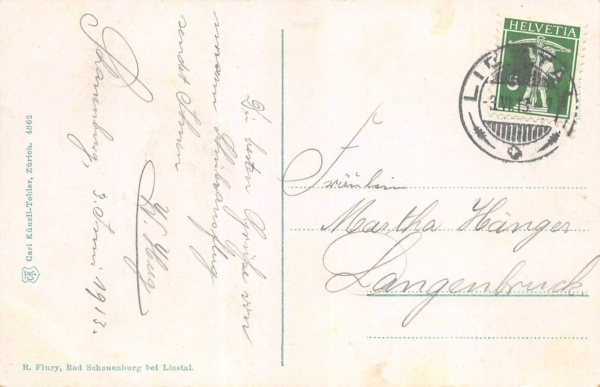 HELVETIA
5
LIESTAL
-3.VI.13.
Die besten Grüße von
meinem
sendet Ihnen
W. Hug.
Schauenburg, 3. Juni 1913.
Fräulein
Martha Hänger
Langenbruck.
Carl Künzli-Tobler, Zürich. 4862
R. Flury, Bad Schauenburg bei Liestal.